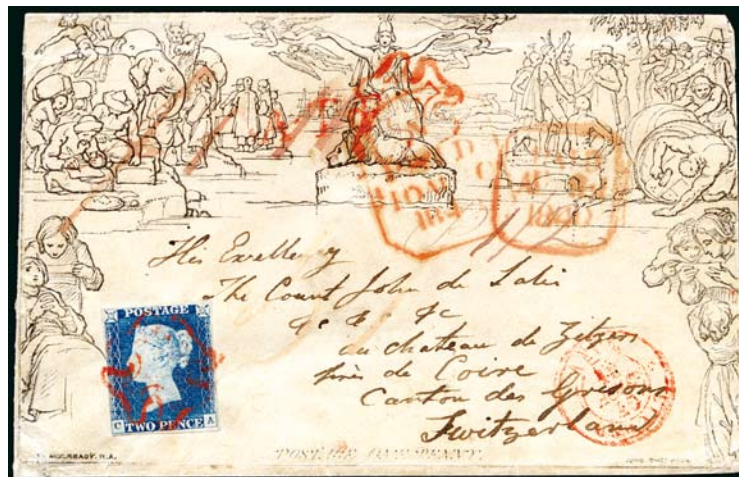 PAID
1840
His Excellency
The Count John de Salis
&c &c &c
au chateau de Zitzers
près de Coire
Canton des Grisons
Switzerland
POSTAGE
C TWO PENCE A
MULREADY. R.A.
POSTAGE ONE PENNY.